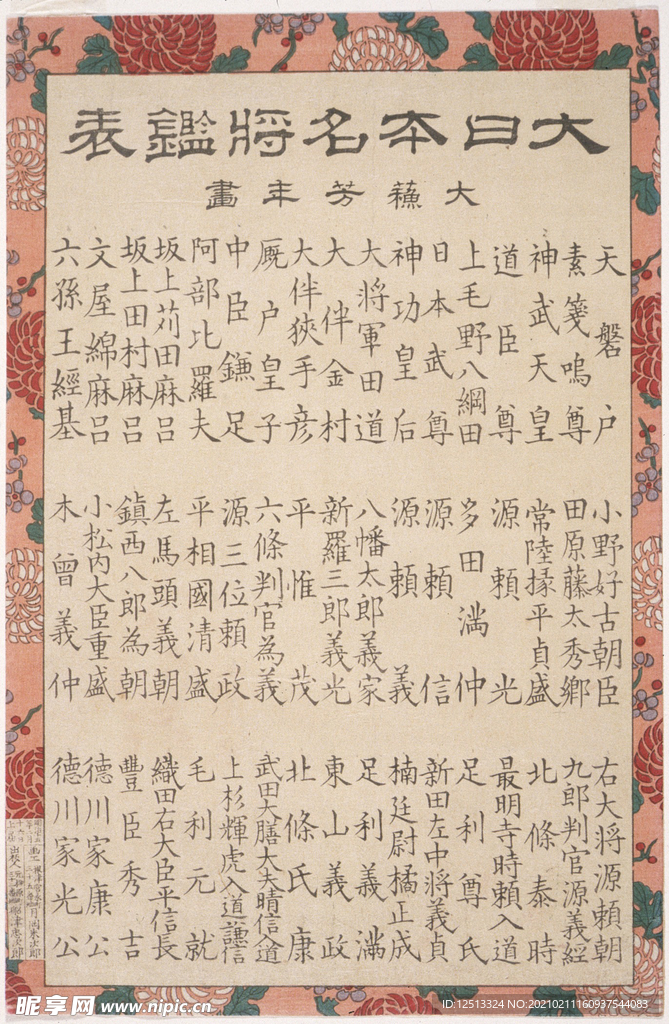 大日本名将鑑表
大蘇芳年畫
天磐戸
素箋嗚尊
神武天皇
道臣尊
上毛野八綱田
日本武尊
神功皇后
大将軍田道
大伴金村
大伴狹手彦
厩戸皇子
中臣鎌足
阿部比羅夫
坂上苅田麻呂
坂上田村麻呂
文屋綿麻呂
六孫王經基
小野好古朝臣
田原藤太秀郷
常陸掾平貞盛
源頼光
多田満仲
源頼信
源頼義
八幡太郎義家
新羅三郎義光
平惟茂
六條判官為義
源三位頼政
平相國清盛
左馬頭義朝
鎮西八郎為朝
小松内大臣重盛
木曾義仲
右大将源頼朝
九郎判官源義經
北條泰時
最明寺時頼入道
足利尊氏
新田左中将義貞
楠廷尉橘正成
足利義満
東山義政
北條氏康
武田大膳大夫晴信入道
上杉輝虎入道謙信
毛利元就
織田右大臣平信長
豐臣秀吉
德川家康公
德川家光公
昵享网 www.nipic.cn
ID:12513324 NO:20210211160937544083